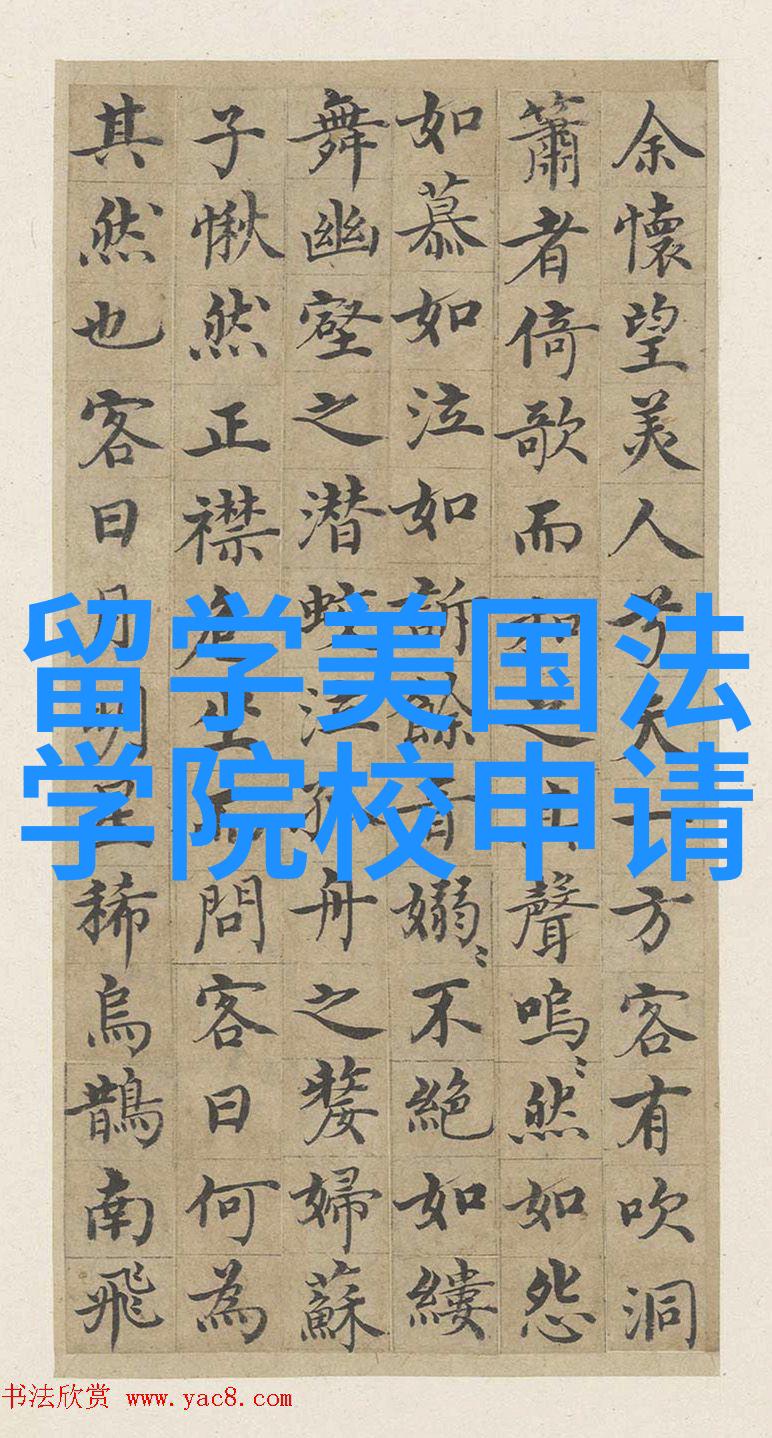 余懷望美人兮天一方客有吹洞
簫者倚歌而和之其聲嗚〻然如怨
如慕如泣如訴餘音嫋〻不絕如縷
舞幽壑之潜蛟泣孤舟之嫠婦蘇
子愀然正襟危坐而問客曰何為
其然也客曰月明星稀烏鵲南飛
留学美国法
学院校申请
书法欣赏 www.yac8.com